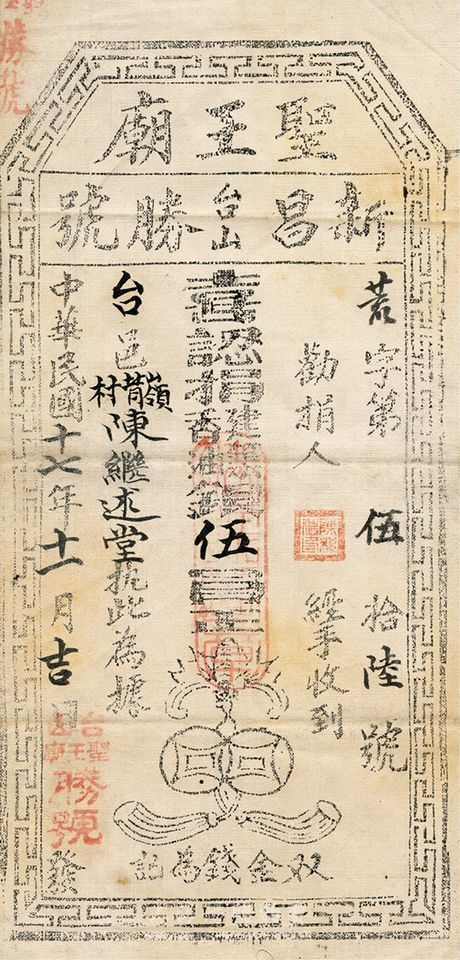 聖王廟
新昌台山勝號
字第伍拾陸號
勸捐人 經手收到
喜認捐建 香油 伍員正
台邑嶺背村陳繼述堂執此為據
中華民國十七年十一月吉日發
双金錢為記
台 聖王廟
勝號
勝號